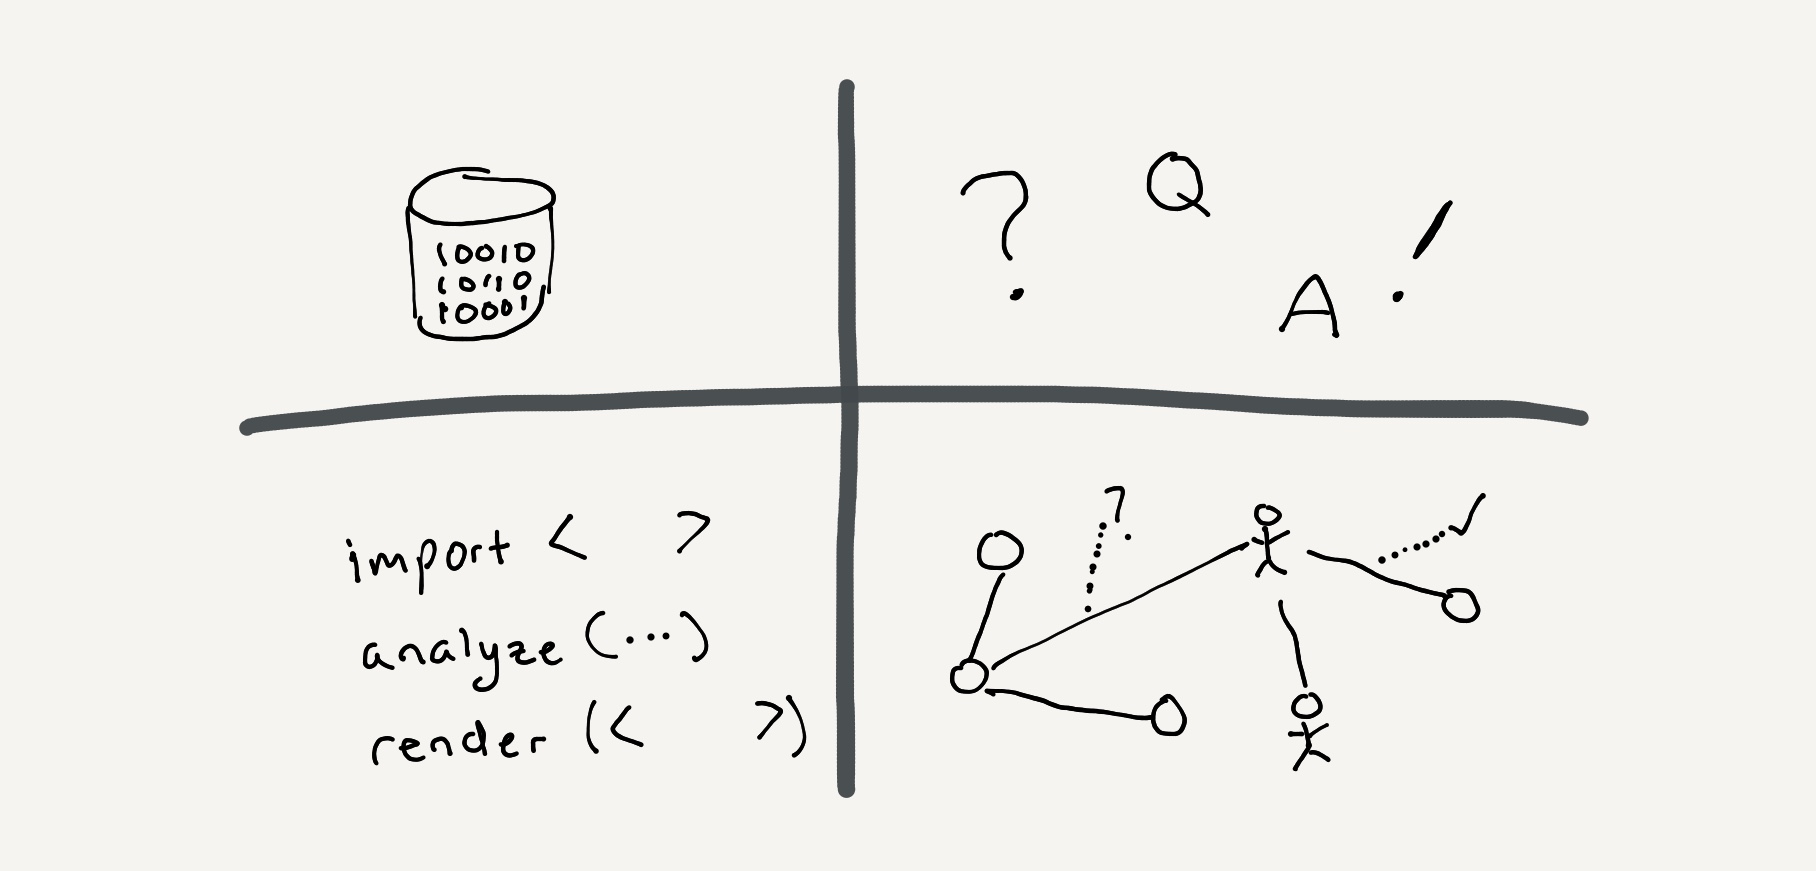 10010
10110
10001
? Q
A !
import < >
analyze (...)
render (< >)
?